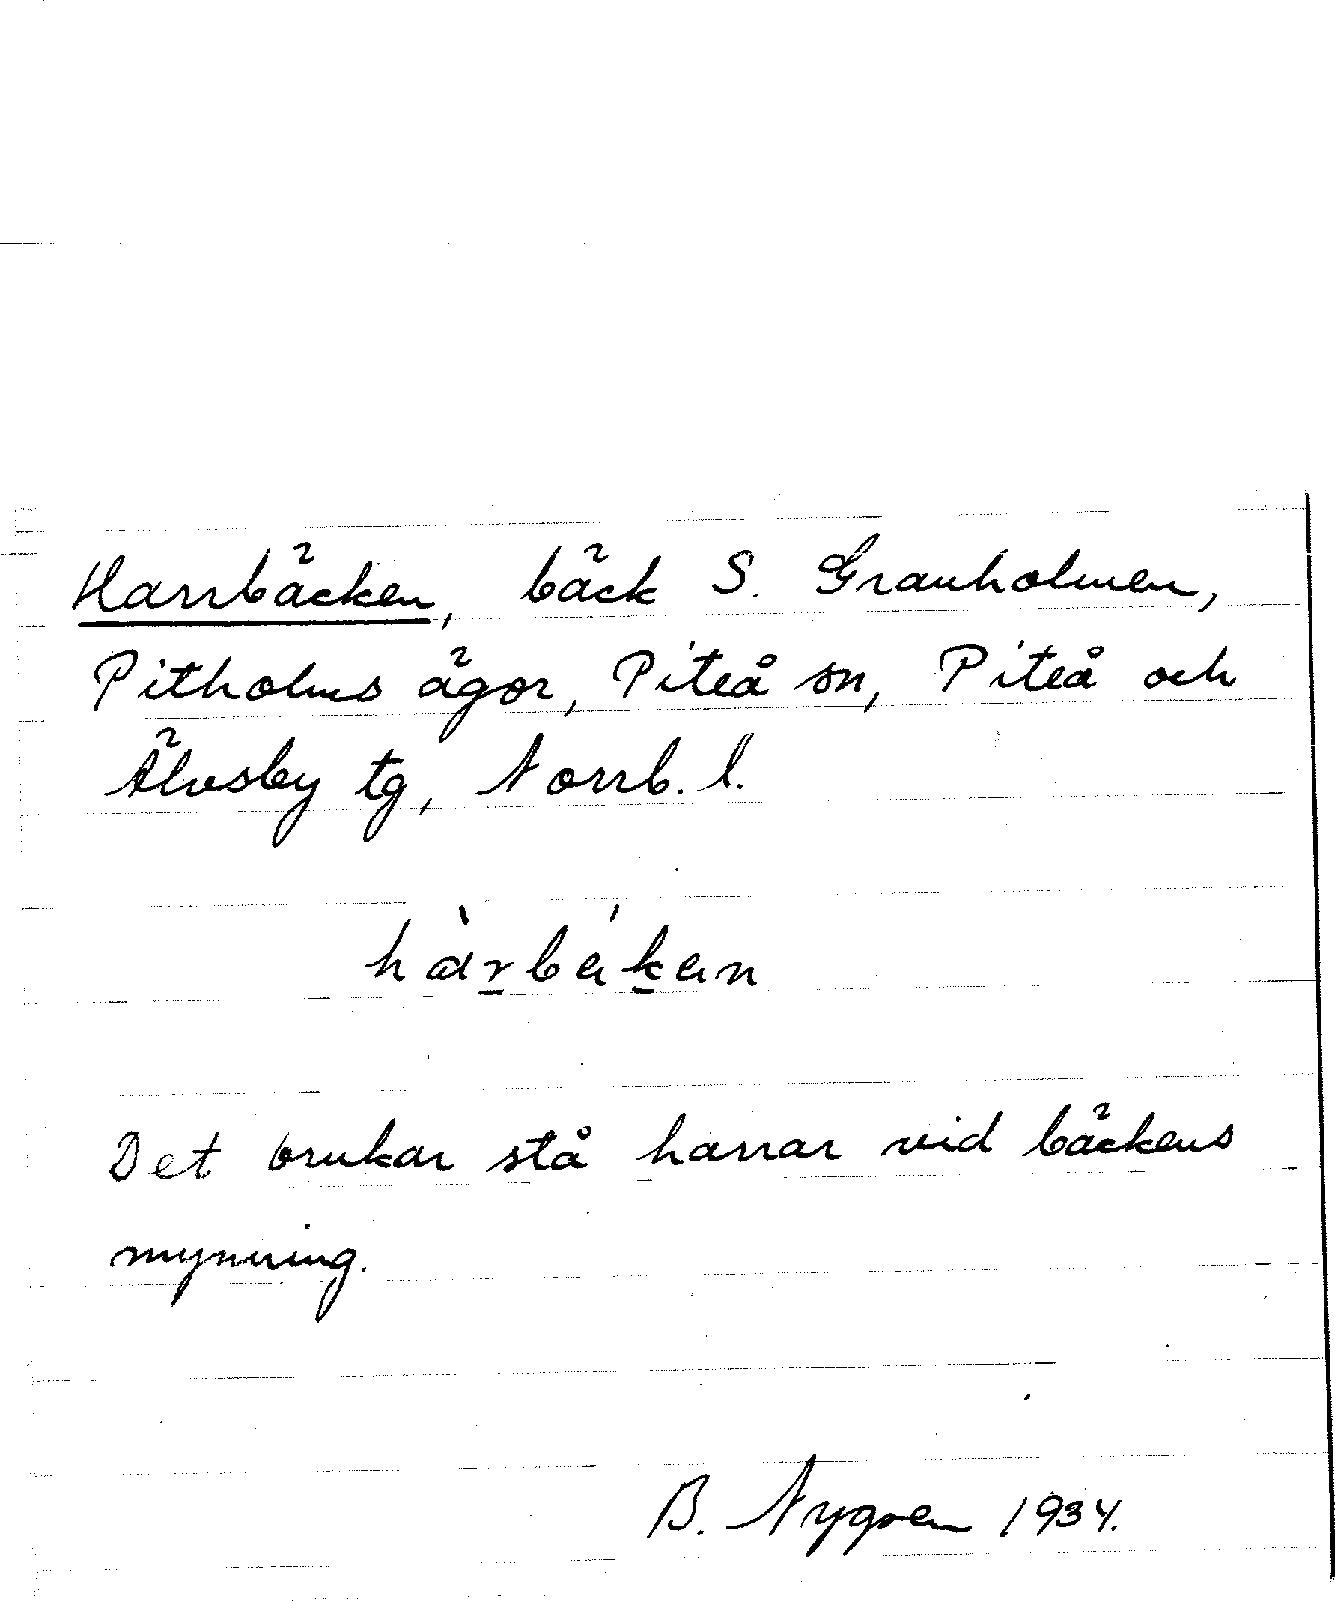 Harrbäcken, bäck S. Granholmen,
Pitholms ägor, Piteå sn, Piteå och
Älvsby tg, Norrb. l.
hàrbákan
Det brukar stå harrar vid bäckens
mynning.
B. Nygren 1934.